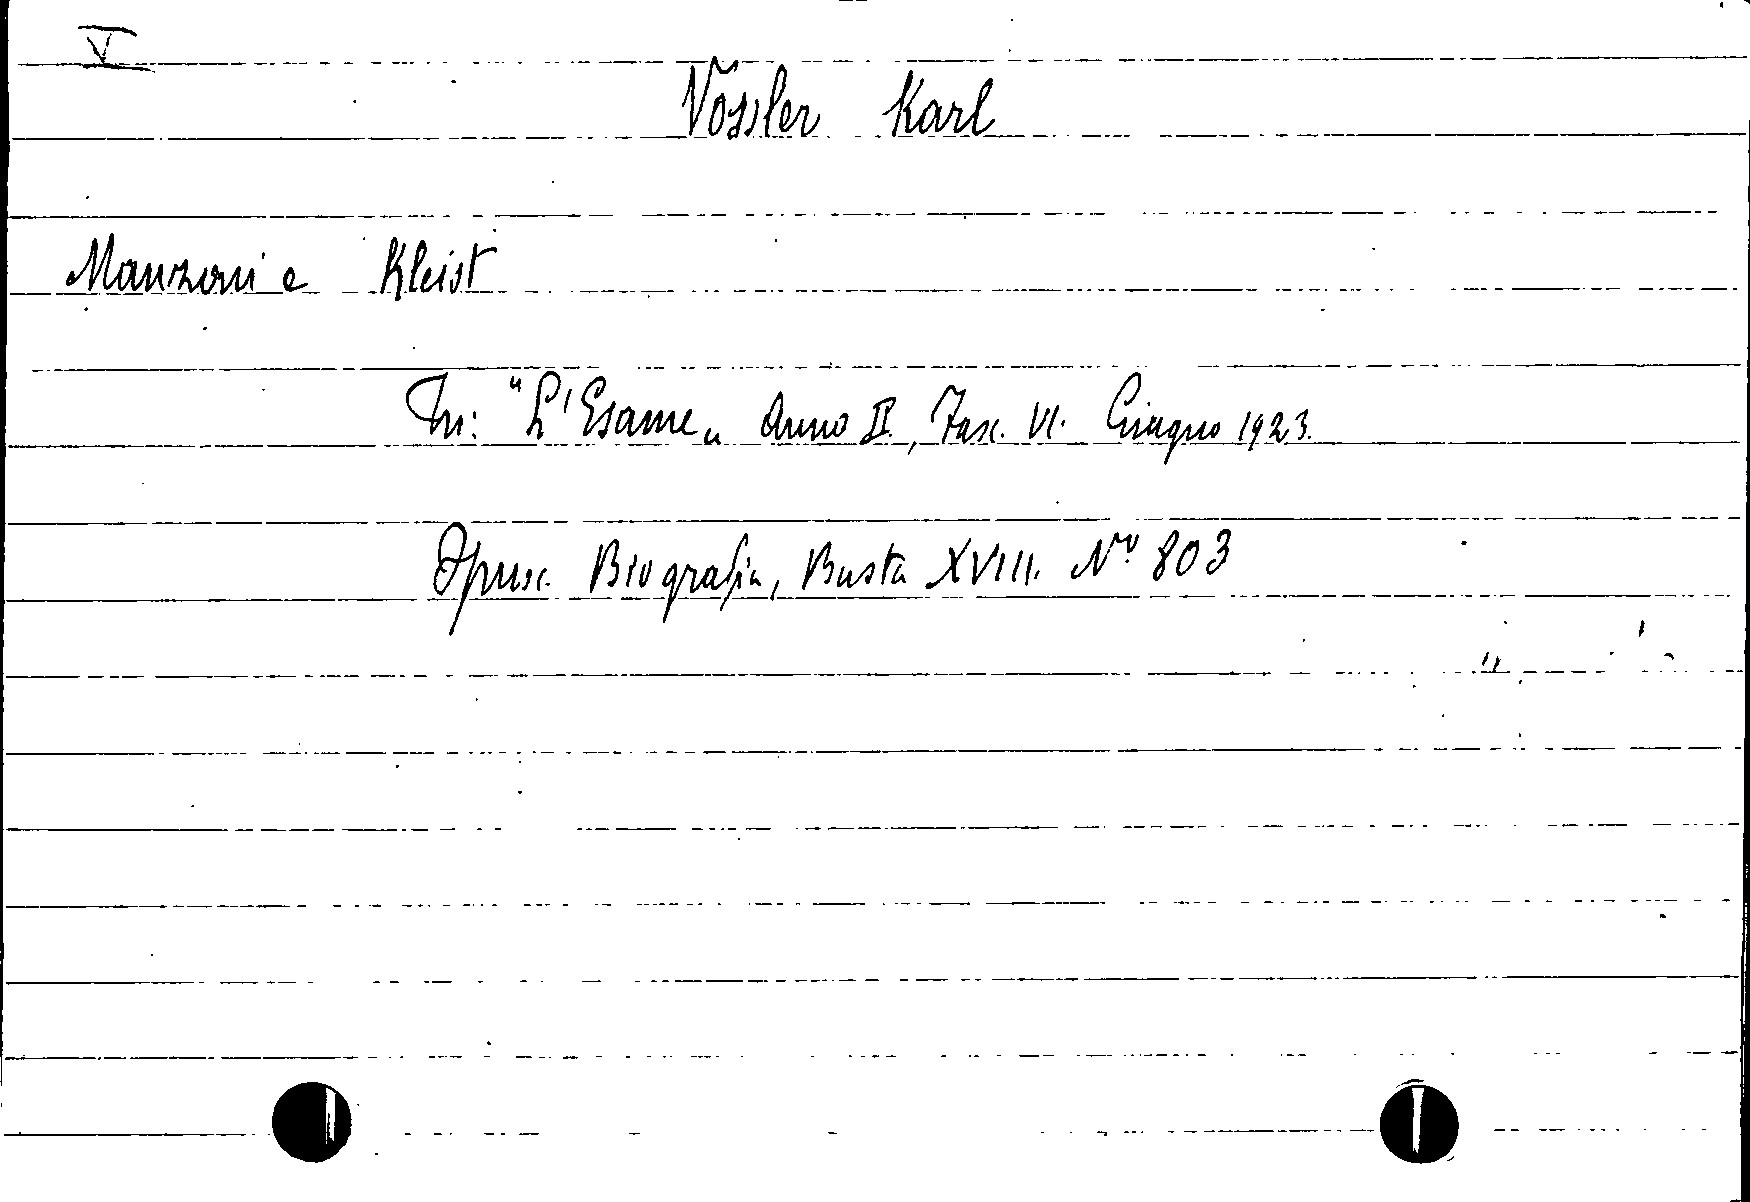 V
Vossler Karl
Manzoni e Kleist
In: "L'Esame„ Anno II, Fasc. VI. Giugno 1923.
Opusc. Biografia, Busta XVIII. Nº 803